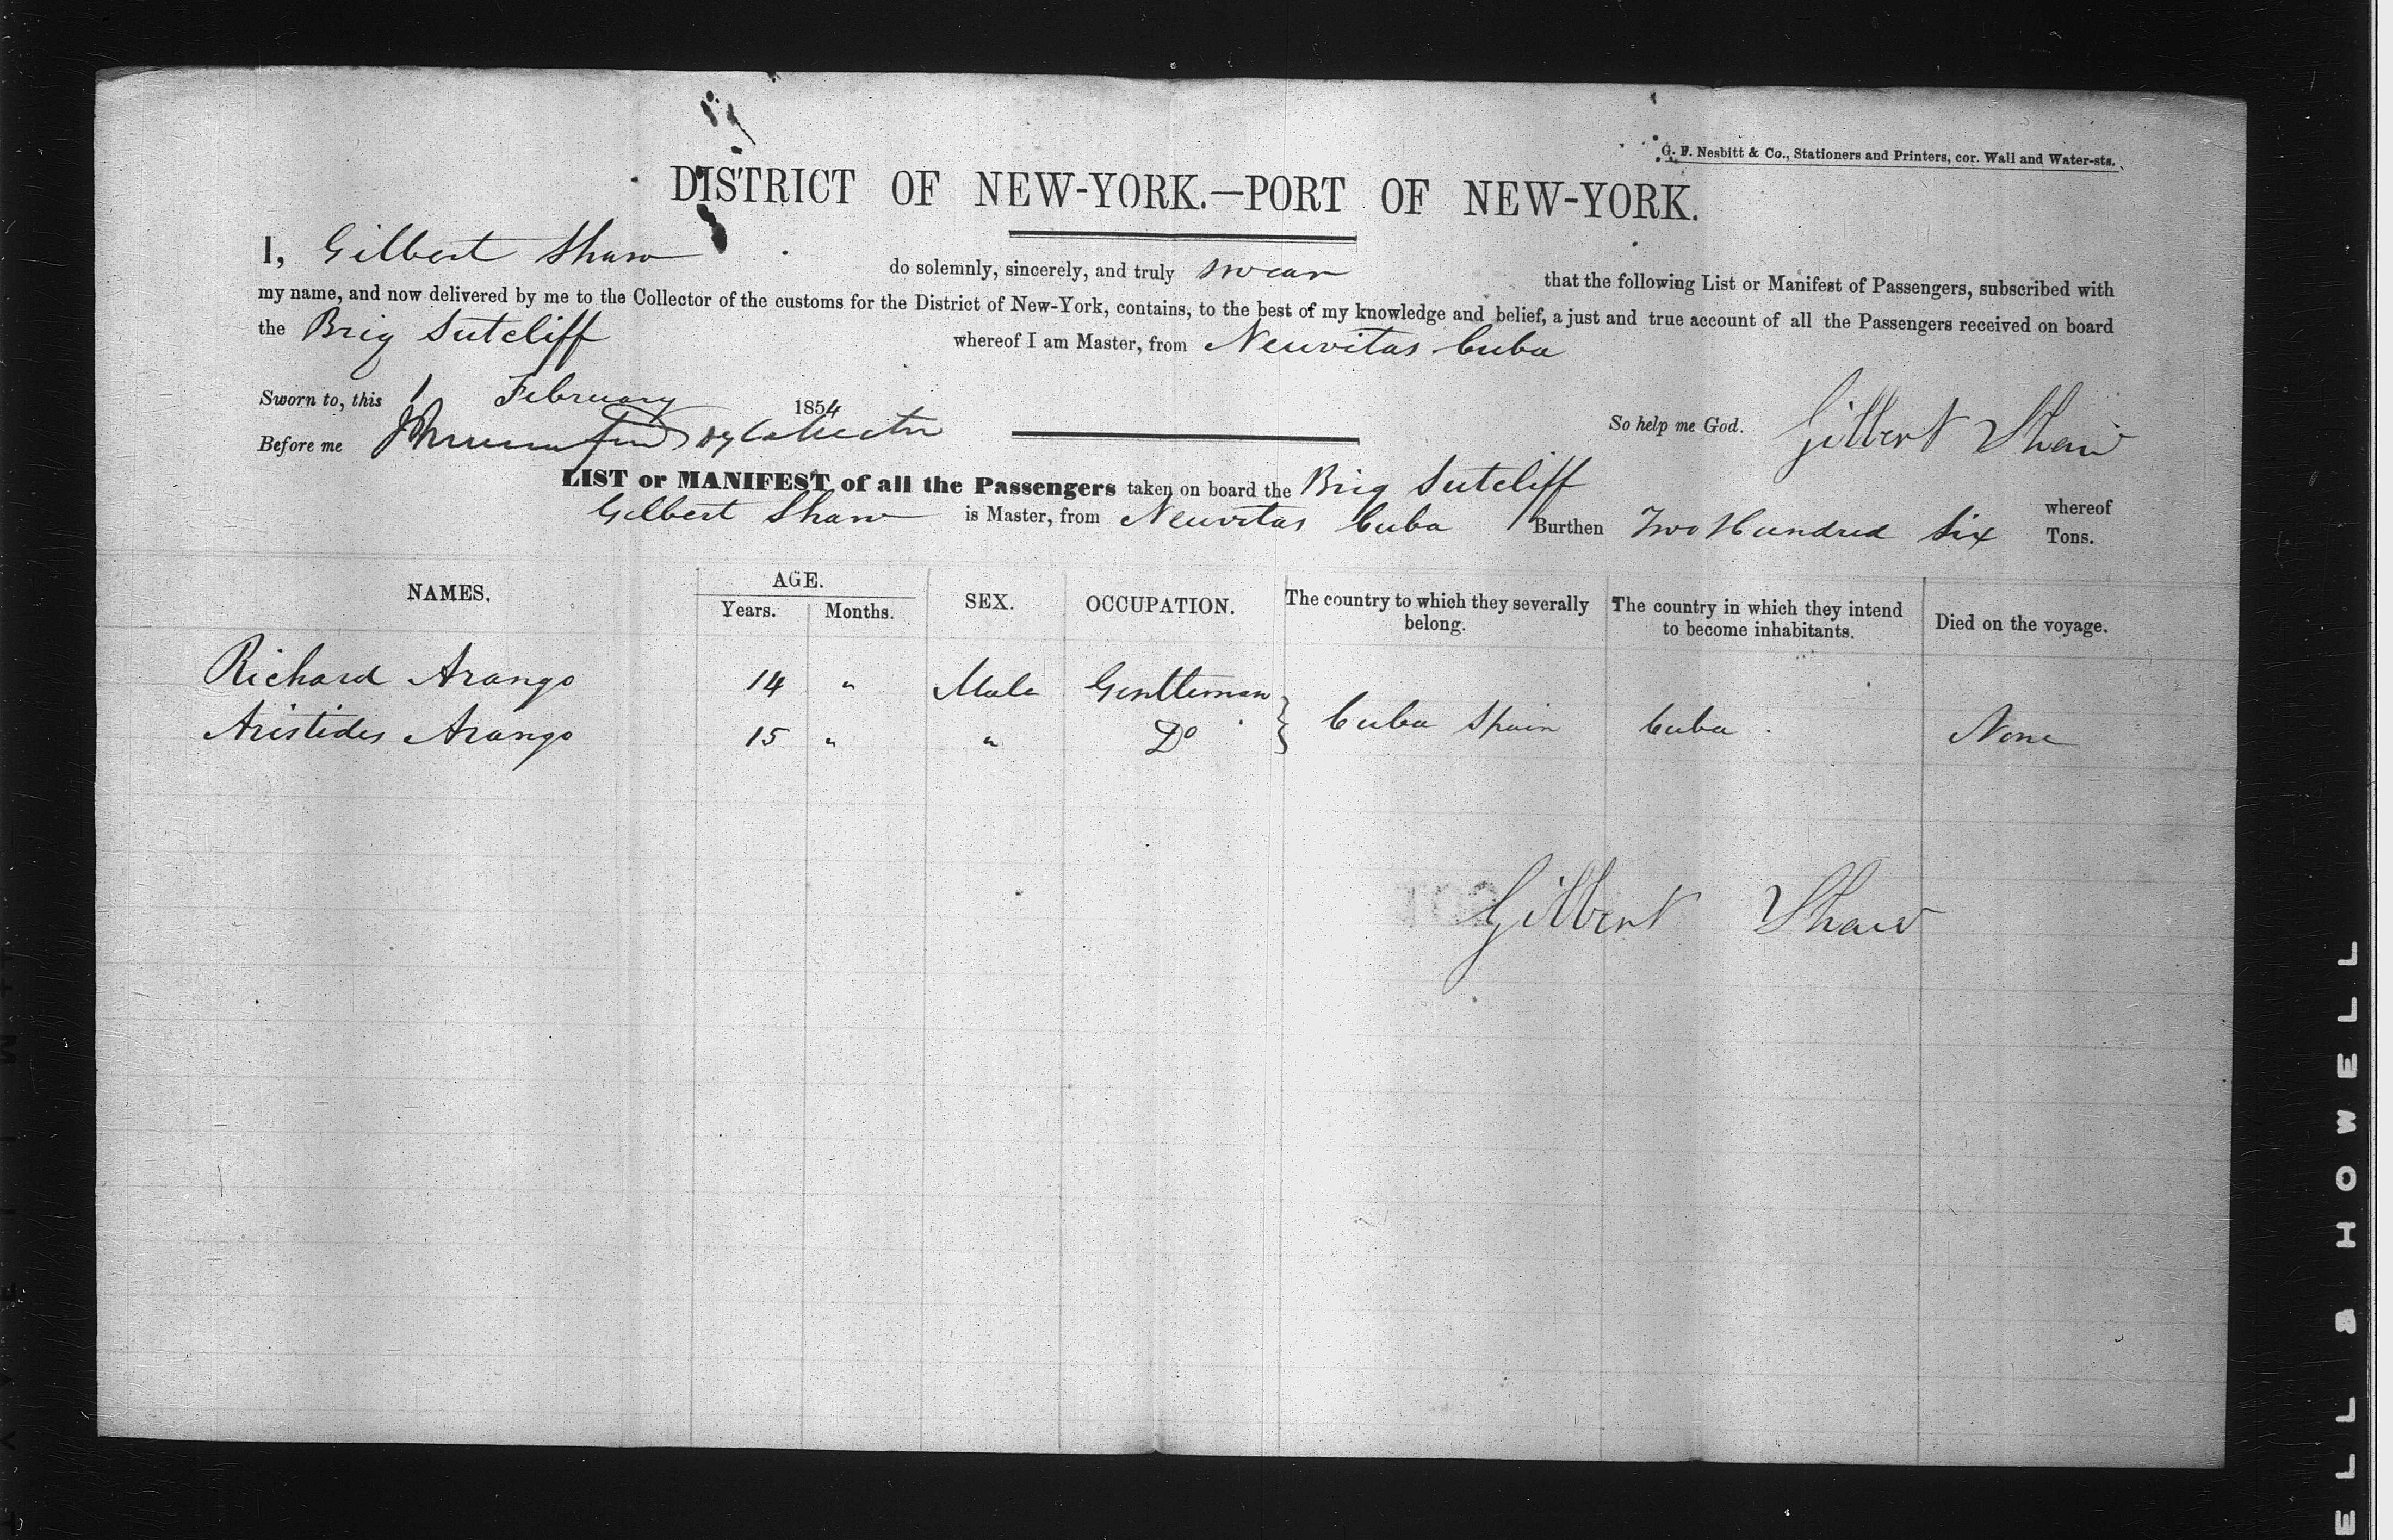 G. F. Nesbitt & Co., Stationers and Printers, cor. Wall and Water-sts.
DISTRICT OF NEW-YORK.—PORT OF NEW-YORK.
I, Gilbert Shaw do solemnly, sincerely, and truly swear that the following List or Manifest of Passengers, subscribed with
my name, and now delivered by me to the Collector of the customs for the District of New-York, contains, to the best of my knowledge and belief, a just and true account of all the Passengers received on board
the Brig Sutcliff whereof I am Master, from Neuvitas Cuba
Sworn to, this 1 February 1854 So help me God. Gilbert Shaw
Before me
LIST or MANIFEST of all the Passengers taken on board the Brig Sutcliff whereof
Gilbert Shaw is Master, from Neuvitas Cuba Burthen Two Hundred Six Tons.
NAMES. AGE. SEX. OCCUPATION. The country to which they severally belong. The country in which they intend to become inhabitants. Died on the voyage.
Years. Months.
Richard Arango 14 " Male Gentleman
Aristides Arango 15 " " Do } Cuba Spain Cuba . None
Gilbert Shaw
ELL & HOWELL